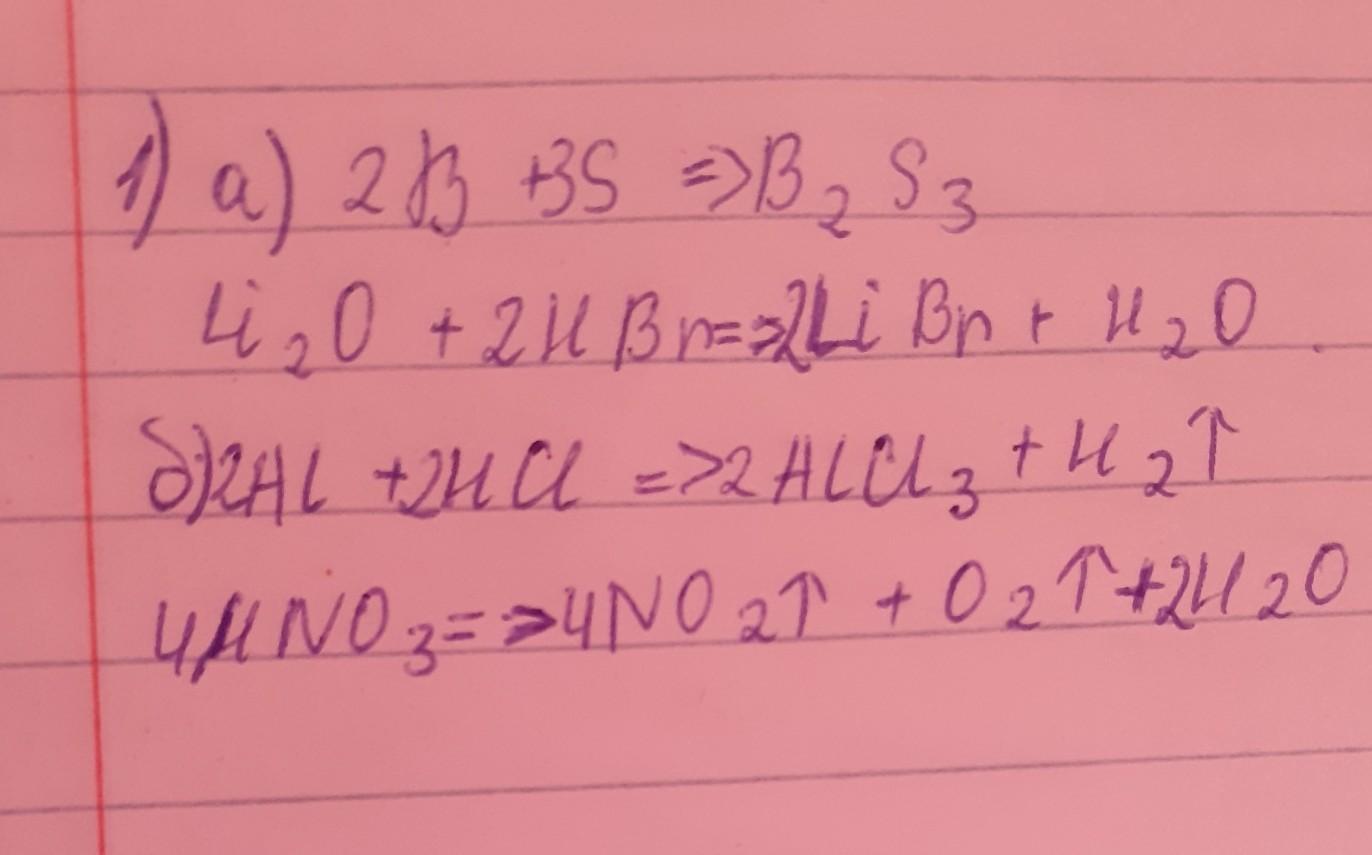 1) а) 2B +3S => B₂S₃
Li₂O + 2HBr => 2LiBr + H₂O
б) 2Al +2HCl => 2AlCl₃ + H₂↑
4HNO₃ => 4NO₂↑ + O₂↑ + 2H₂O